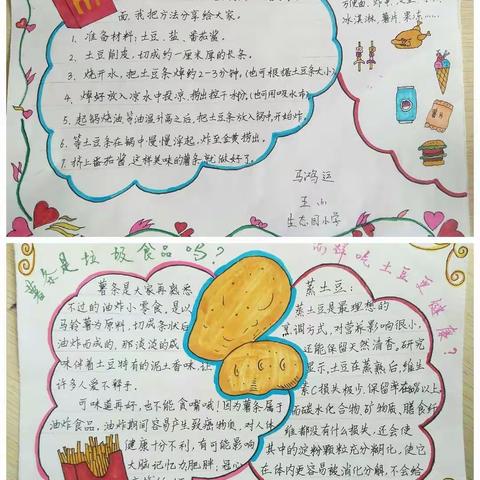 面,我把方法分享给大家。
1、准备材料,土豆、盐、番茄酱。
2、土豆削皮,切成约一厘米厚的长条。
3、烧开水,把土豆条焯约2-3分钟,(也可根据土豆条大小)
4、焯好放入凉水中投凉,捞出控干水份,(也可用吸水布)
5、起锅烧油,等油温升高之后,把土豆条放入锅中开始炸。
6、等土豆条在锅中慢慢浮起,炸至金黄捞出。
7、挤上番茄酱,这样美味的薯条就做好了。
冰淇淋、薯片、果冻……
马鸿运
五小
生态园小学
薯条是垃圾食品吗?
而样吃土豆更健康?
薯条是大家再熟悉
不过的油炸小零食,是以
马铃薯为原料,切成条状后
油炸而成的,那淡淡的咸
味伴着土豆特有的泥土香味,让
许多人爱不释手。
可味道再好,也不能贪嘴哦!因为薯条属于
油炸食品,油炸期间容易产生致癌物质,对人体
健康十分不利,有可能影响
大脑记忆力,肥胖,冠心
蒸土豆:
蒸土豆是最理想的
烹调方式,对营养影响很小,
还能保留天然清香。研究
显示,土豆在蒸熟后,维生
素C损失极少,保留率在80%以上,
而碳水化合物,矿物质,膳食纤
维都没有什么损失,还会使
其中的淀粉颗粒充分糊化,使它
在体内更容易被消化分解,不会给